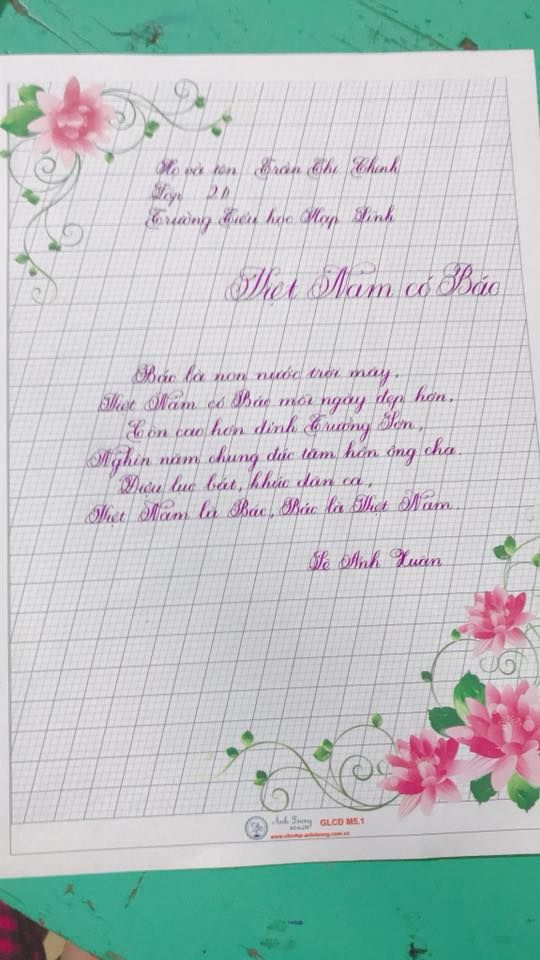 Họ và tên Trần Thị Thinh
Lớp 2A
Trường Tiểu học Hợp Lĩnh
Việt Nam có Bác
Bác là non nước trời mây,
Việt Nam có Bác mỗi ngày đẹp hơn.
Còn cao hơn đỉnh Trường Sơn,
Nghìn năm chung đúc tâm hồn ông cha.
Điệu lục bát, khúc dân ca,
Việt Nam là Bác, Bác là Việt Nam.
Lê Anh Xuân
Anh Dương
GLCD M5.1